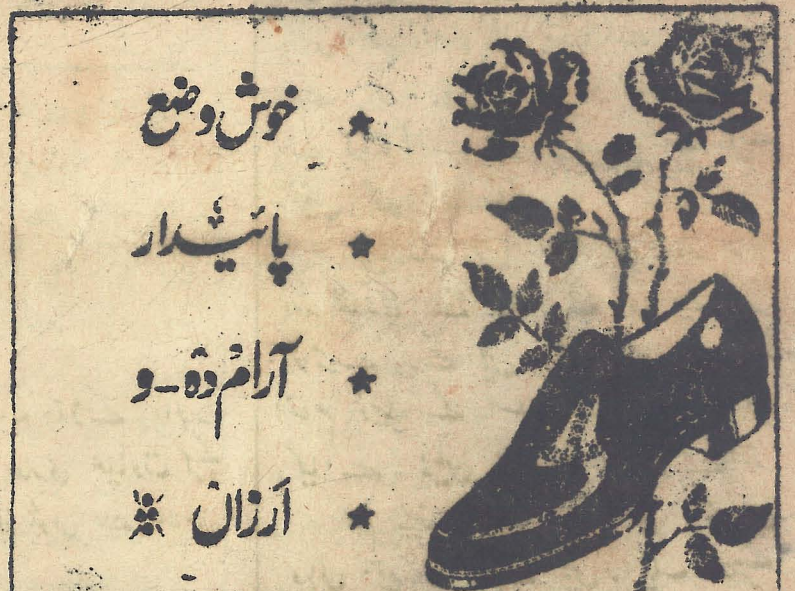 خوش وضع
پائیدار
آرام دہ - و
ارزان